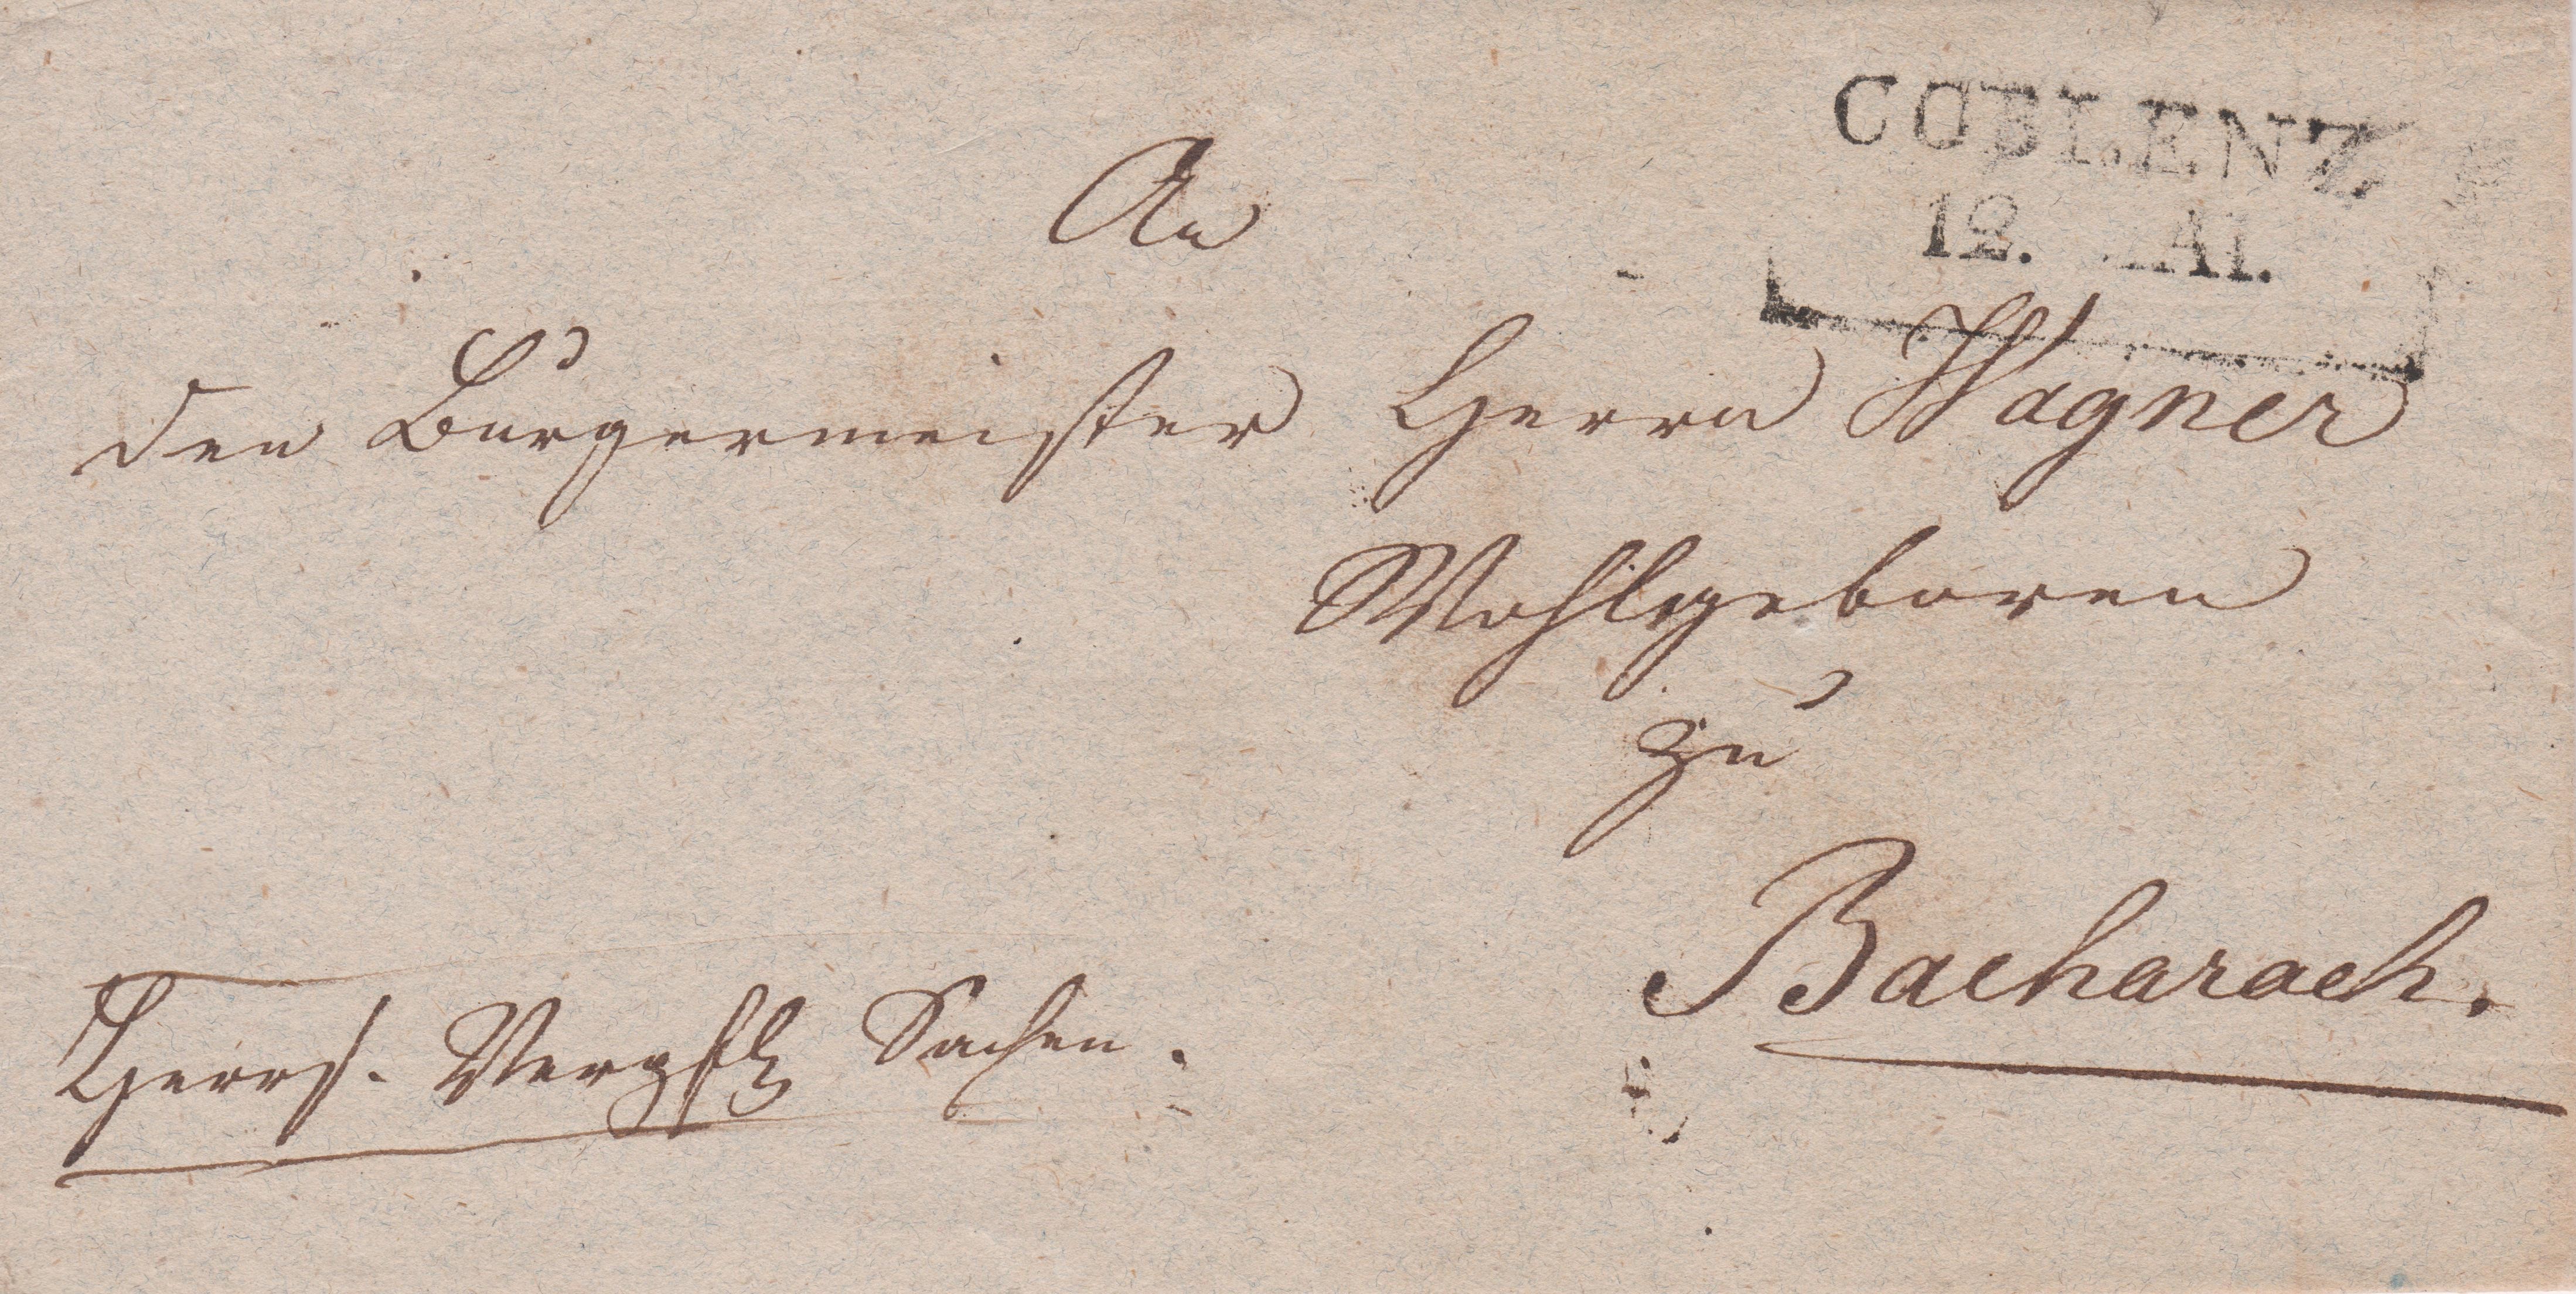 COBLENZ
12. MAI.
An
den Bürgermeister Herrn Wagner
Wohlgeboren
zu
Bacharach.
Herrs. Sachen.